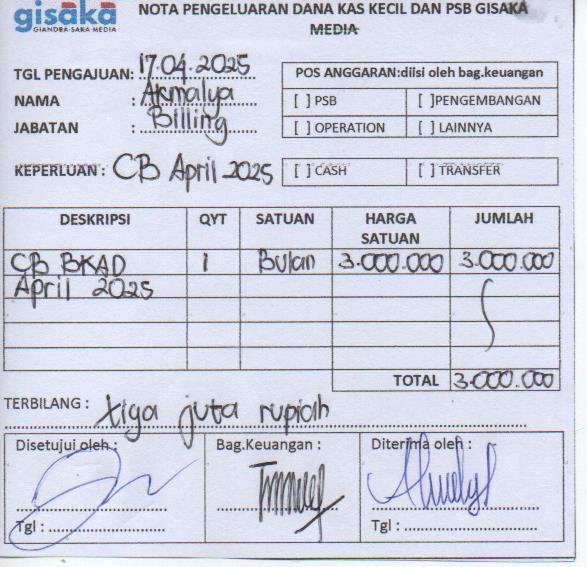 gisaka
GIANDRA SAKA MEDIA
NOTA PENGELUARAN DANA KAS KECIL DAN PSB GISAKA
MEDIA
TGL PENGAJUAN: 17.04.2025
NAMA : Akmalya
JABATAN : Billing
POS ANGGARAN:diisi oleh bag.keuangan
[ ] PSB [ ]PENGEMBANGAN
[ ] OPERATION [ ] LAINNYA
KEPERLUAN : CB April 2025
[ ] CASH [ ] TRANSFER
DESKRIPSI QYT SATUAN HARGA SATUAN JUMLAH
CB BKAD 1 Bulan 3.000.000 3.000.000
April 2025
TOTAL 3.000.000
TERBILANG : tiga juta rupiah
Disetujui oleh : Bag.Keuangan : Diterima oleh :
Tgl : Tgl :